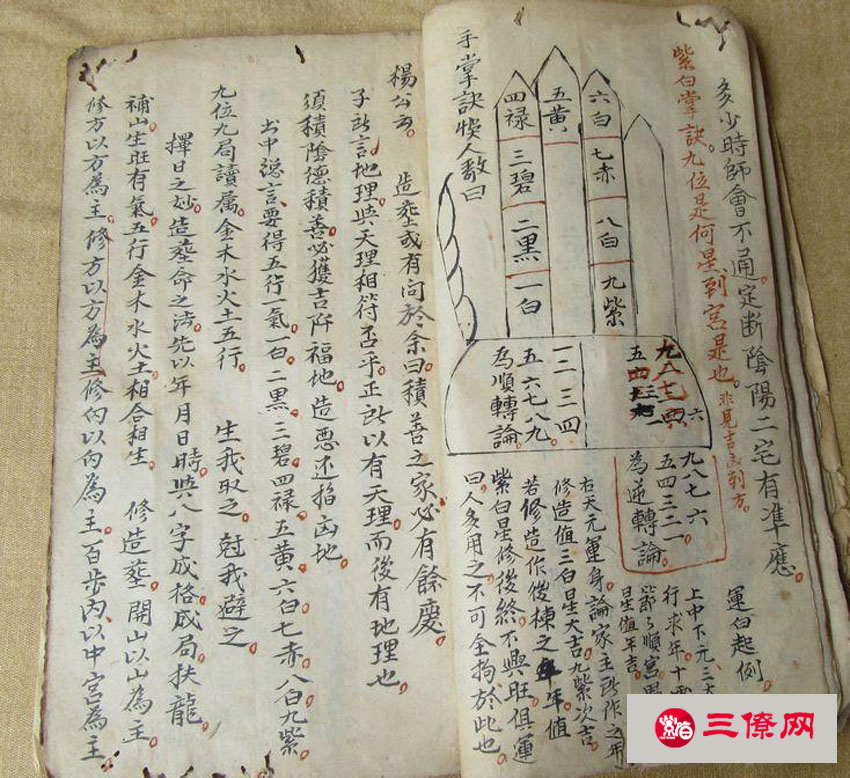 多少時師會不通定断陰陽二宅有準應
紫白掌訣九位是何星到宮是也
非見吉凶到方
六白
七赤
八白
九紫
五黄
四禄
三碧
二黒
一白
手掌訣悮人教曰
一二三四
五六七八九
為順轉論
九八七六
五四三二一
為逆轉論
運白起例
上中下元三
行求年十
節順宮
星值年吉
右天元運身論家主所作之年
修造值三白星大吉九紫次吉
若修造作後棟之年年值
紫白星修後終不興旺俱運
曰人多用之不可全拘於此也
楊公云 造塟或有问於余曰積善之家必有餘慶
子所言地理與天理相符否乎正所以有天理而後有地理也
須積陰德積善必獲吉阡福地造悪还招凶地
书中總言要得五行一氣一白二黒三碧四禄五黄六白七赤八白九紫
九位九局讀属金木水火土五行 生我取之尅我避之
擇日之妙造塟命之法先以年月日時與八字成格成局扶龍
補山生旺有氣五行金木水火土相合相生 修造塟開山以山為主
修方以方為主修方以方為主修向以向為主百步内以中宮為主
三僚网